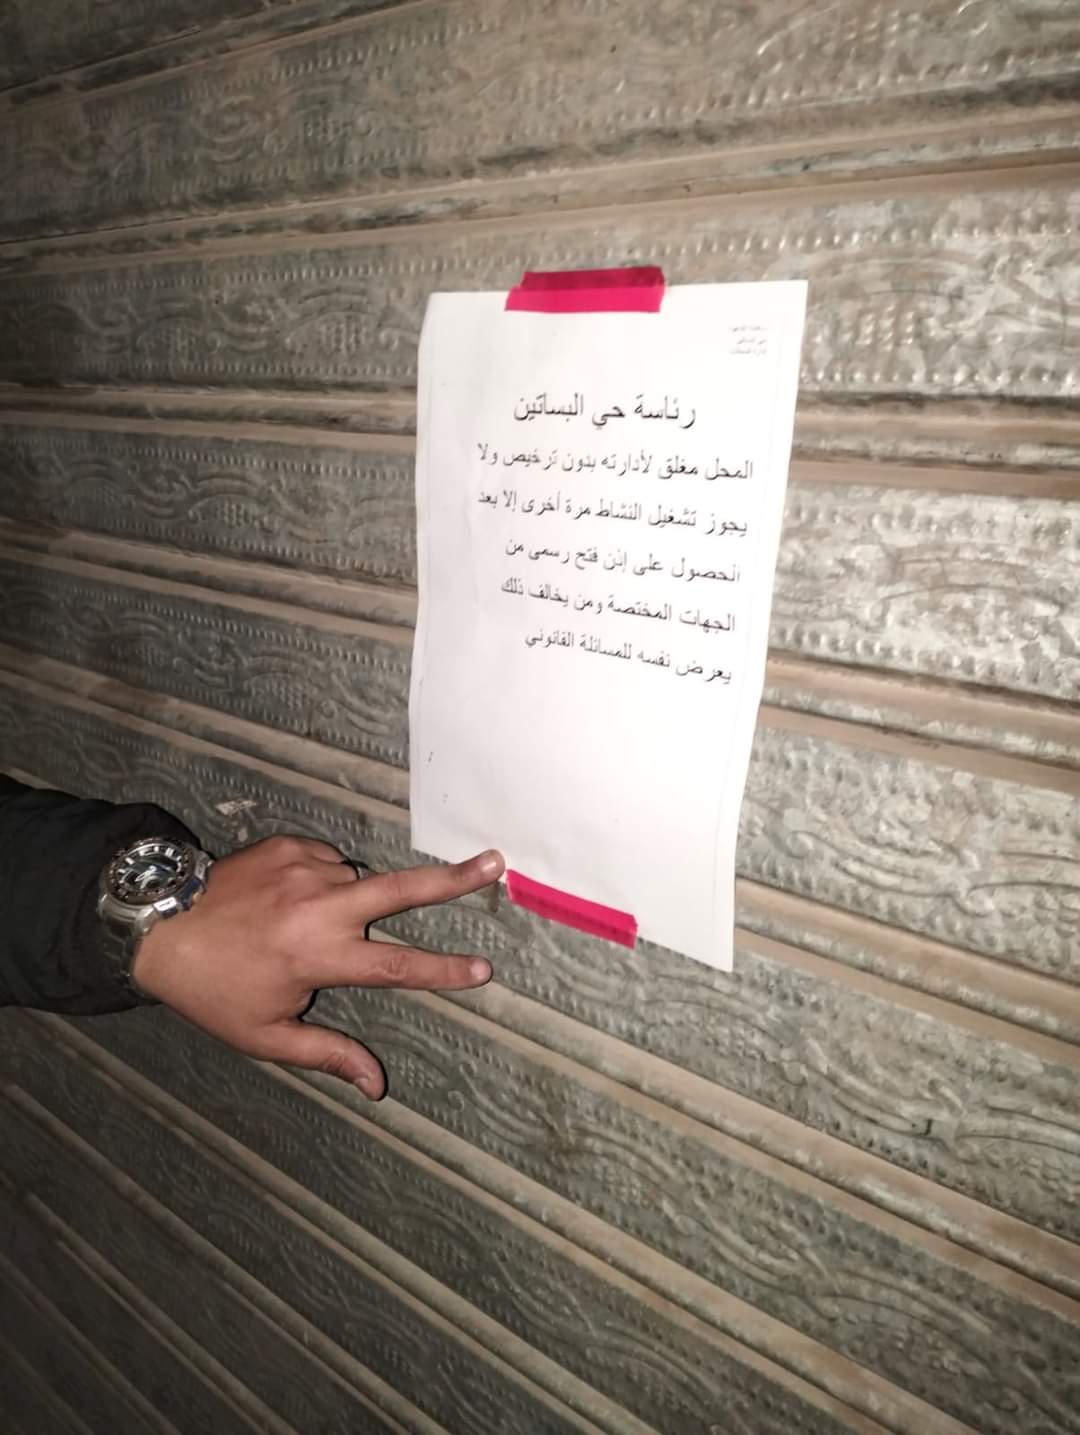 رئاسة حي البساتين
المحل مغلق لأدارته بدون ترخيص ولا
يجوز تشغيل النشاط مرة أخرى إلا بعد
الحصول على إذن فتح رسمى من
الجهات المختصة ومن يخالف ذلك
يعرض نفسه للمسائلة القانوني